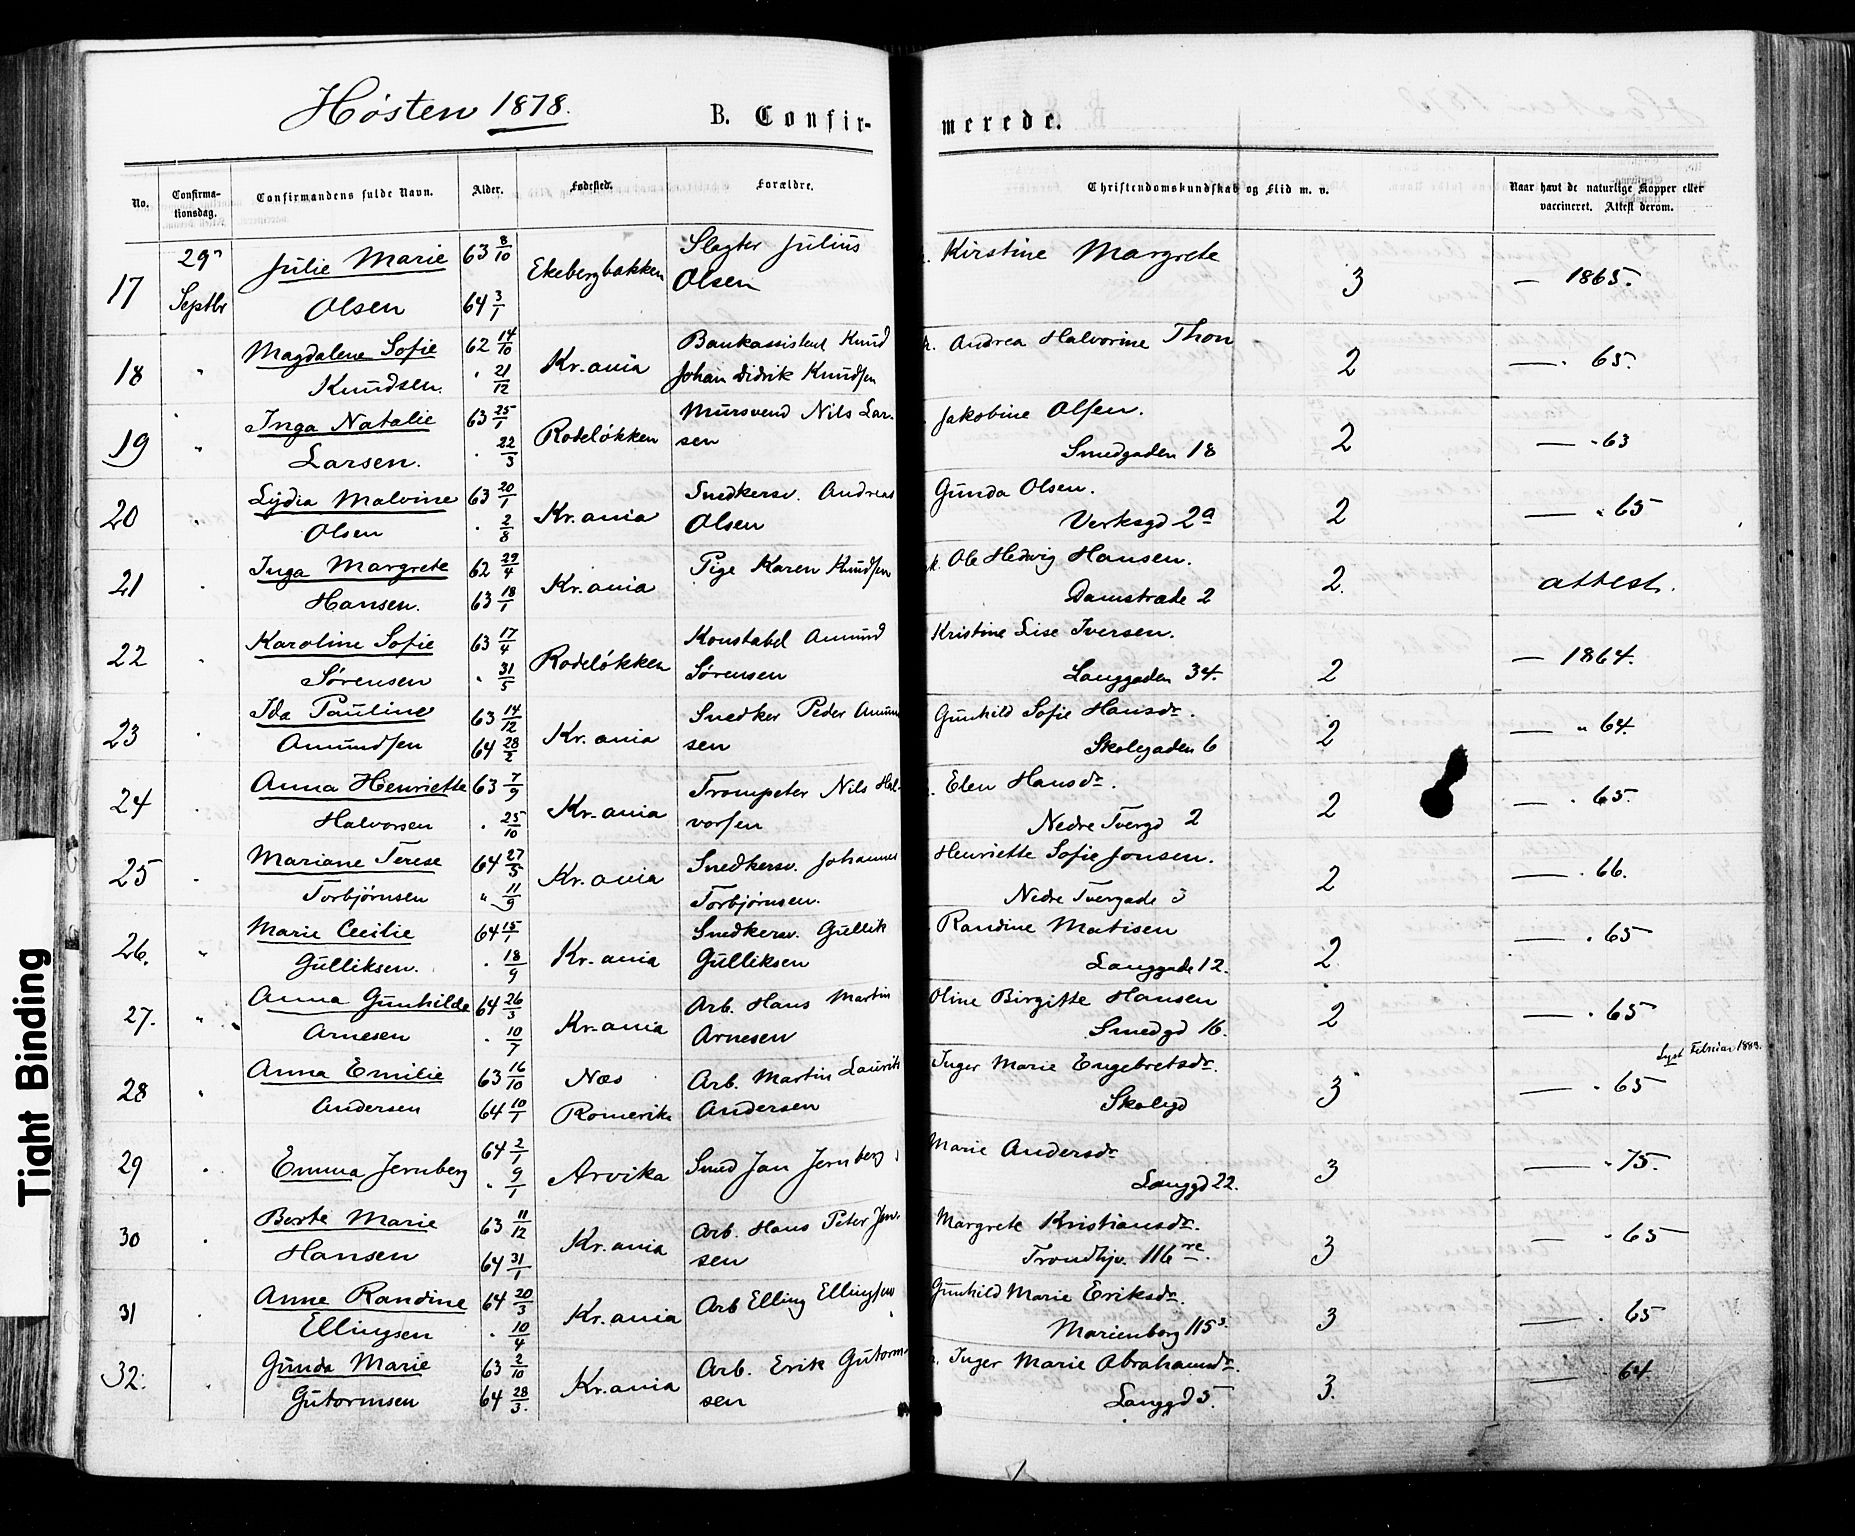 Høsten 1878.
B. Confir-
merede.
No.
Confirma-
tionsdag.
Confirmandens fulde Navn.
Alder.
Fødested.
Forældre.
Christendomskundskab og Flid m. v.
Naar havt de naturlige Kopper eller
vaccineret. Attest derom.
17 29 Septbr Julie Marie Olsen 63 8/10 64 3/1 Ekebergbakken Slagter Julius Olsen Kirstine Margrete 3 — 1865.
18 " Magdalene Sofie Knudsen. 62 14/10 " 21/12 Kr.ania Bankassistent Knud Johan Didrik Knudsen Andrea Halvorine Thon 2 — " 65.
19 " Inga Natalie Larsen. 63 25/1 " 22/3 Rodeløkken Mursvend Nils Larsen Jakobine Olsen. Smedgaden 18 2 — " 63
20 " Lydia Malvine Olsen 63 20/1 " 2/8 Kr.ania Snedkersv. Andreas Olsen Gunda Olsen. Verksgd 2a 2 — " 65
21 " Inga Margrete Hansen. 62 29/4 63 18/1 Kr.ania Pige Karen Knudsen Ole Hedvig Hansen. Damstræde 2 2. attest.
22 " Karoline Sofie Sørensen 63 17/4 " 31/5 Rodeløkken Konstabel Amund Sørensen Kristine Lise Iversen. Langgaden 34. 2 — 1864.
23 " Ida Pauline Amundsen 63 14/12 64 28/2 Kr.ania Snedker Peder Amundsen Gunhild Sofie Hansdr. Skolegaden 6 2 — " 64.
24 " Anna Henriette Halvorsen 63 7/9 " 25/10 Kr.ania Trompeter Nils Halvorsen Elen Hansdr. Nedre Tvergd 2 2 — " 65.
25 " Mariane Terese Torbjørnsen 64 27/5 " 11/9 Kr.ania Snedkersv. Johannes Torbjørnsen. Henriette Sofie Jonsen. Nedre Tvergade 3 2 — " 66.
26. " Marie Cecilie Gulliksen. 64 15/1 " 18/9 Kr.ania Snedkersv. Gullik Gulliksen Randine Matisen Langgade 12. 2 — " 65
27. " Anna Gunhilde Arnesen 64 26/3 " 10/7 Kr.ania Arb. Hans Martin Arnesen Oline Birgitte Hansen Smedgd 16. 2 — " 65
28 " Anna Emilie Andersen 63 16/10 64 10/1 Næs Romerike Arb. Martin Laurits Andersen Inger Marie Engebretsdr. Skolegd 3 — " 65 Lyst Februar
29 " Emma Jernberg 64 2/1 " 9/1 Arvika Smed Jan Jernberg Marie Andersdr Langgd 22. 3 — " 75.
30 " Berte Marie Hansen 63 11/12 64 31/1 Kr.ania Arb. Hans Peter Jensen Margrete Kristiansdr. Trondhjv. 116 3 — " 65
31 " Anne Randine Ellingsen 64 20/3 " 10/4 Kr.ania Arb Elling Ellingsen Gunhild Marie Eriksdr. Marienborg 115 3 — " 65
32. " Gunda Marie Gutormsen 63 2/10 64 28/3. Kr.ania Arb. Erik Gutormsen Inger Marie Abrahamsdr. Langgd 5. 3. — " 64.
Tight Binding